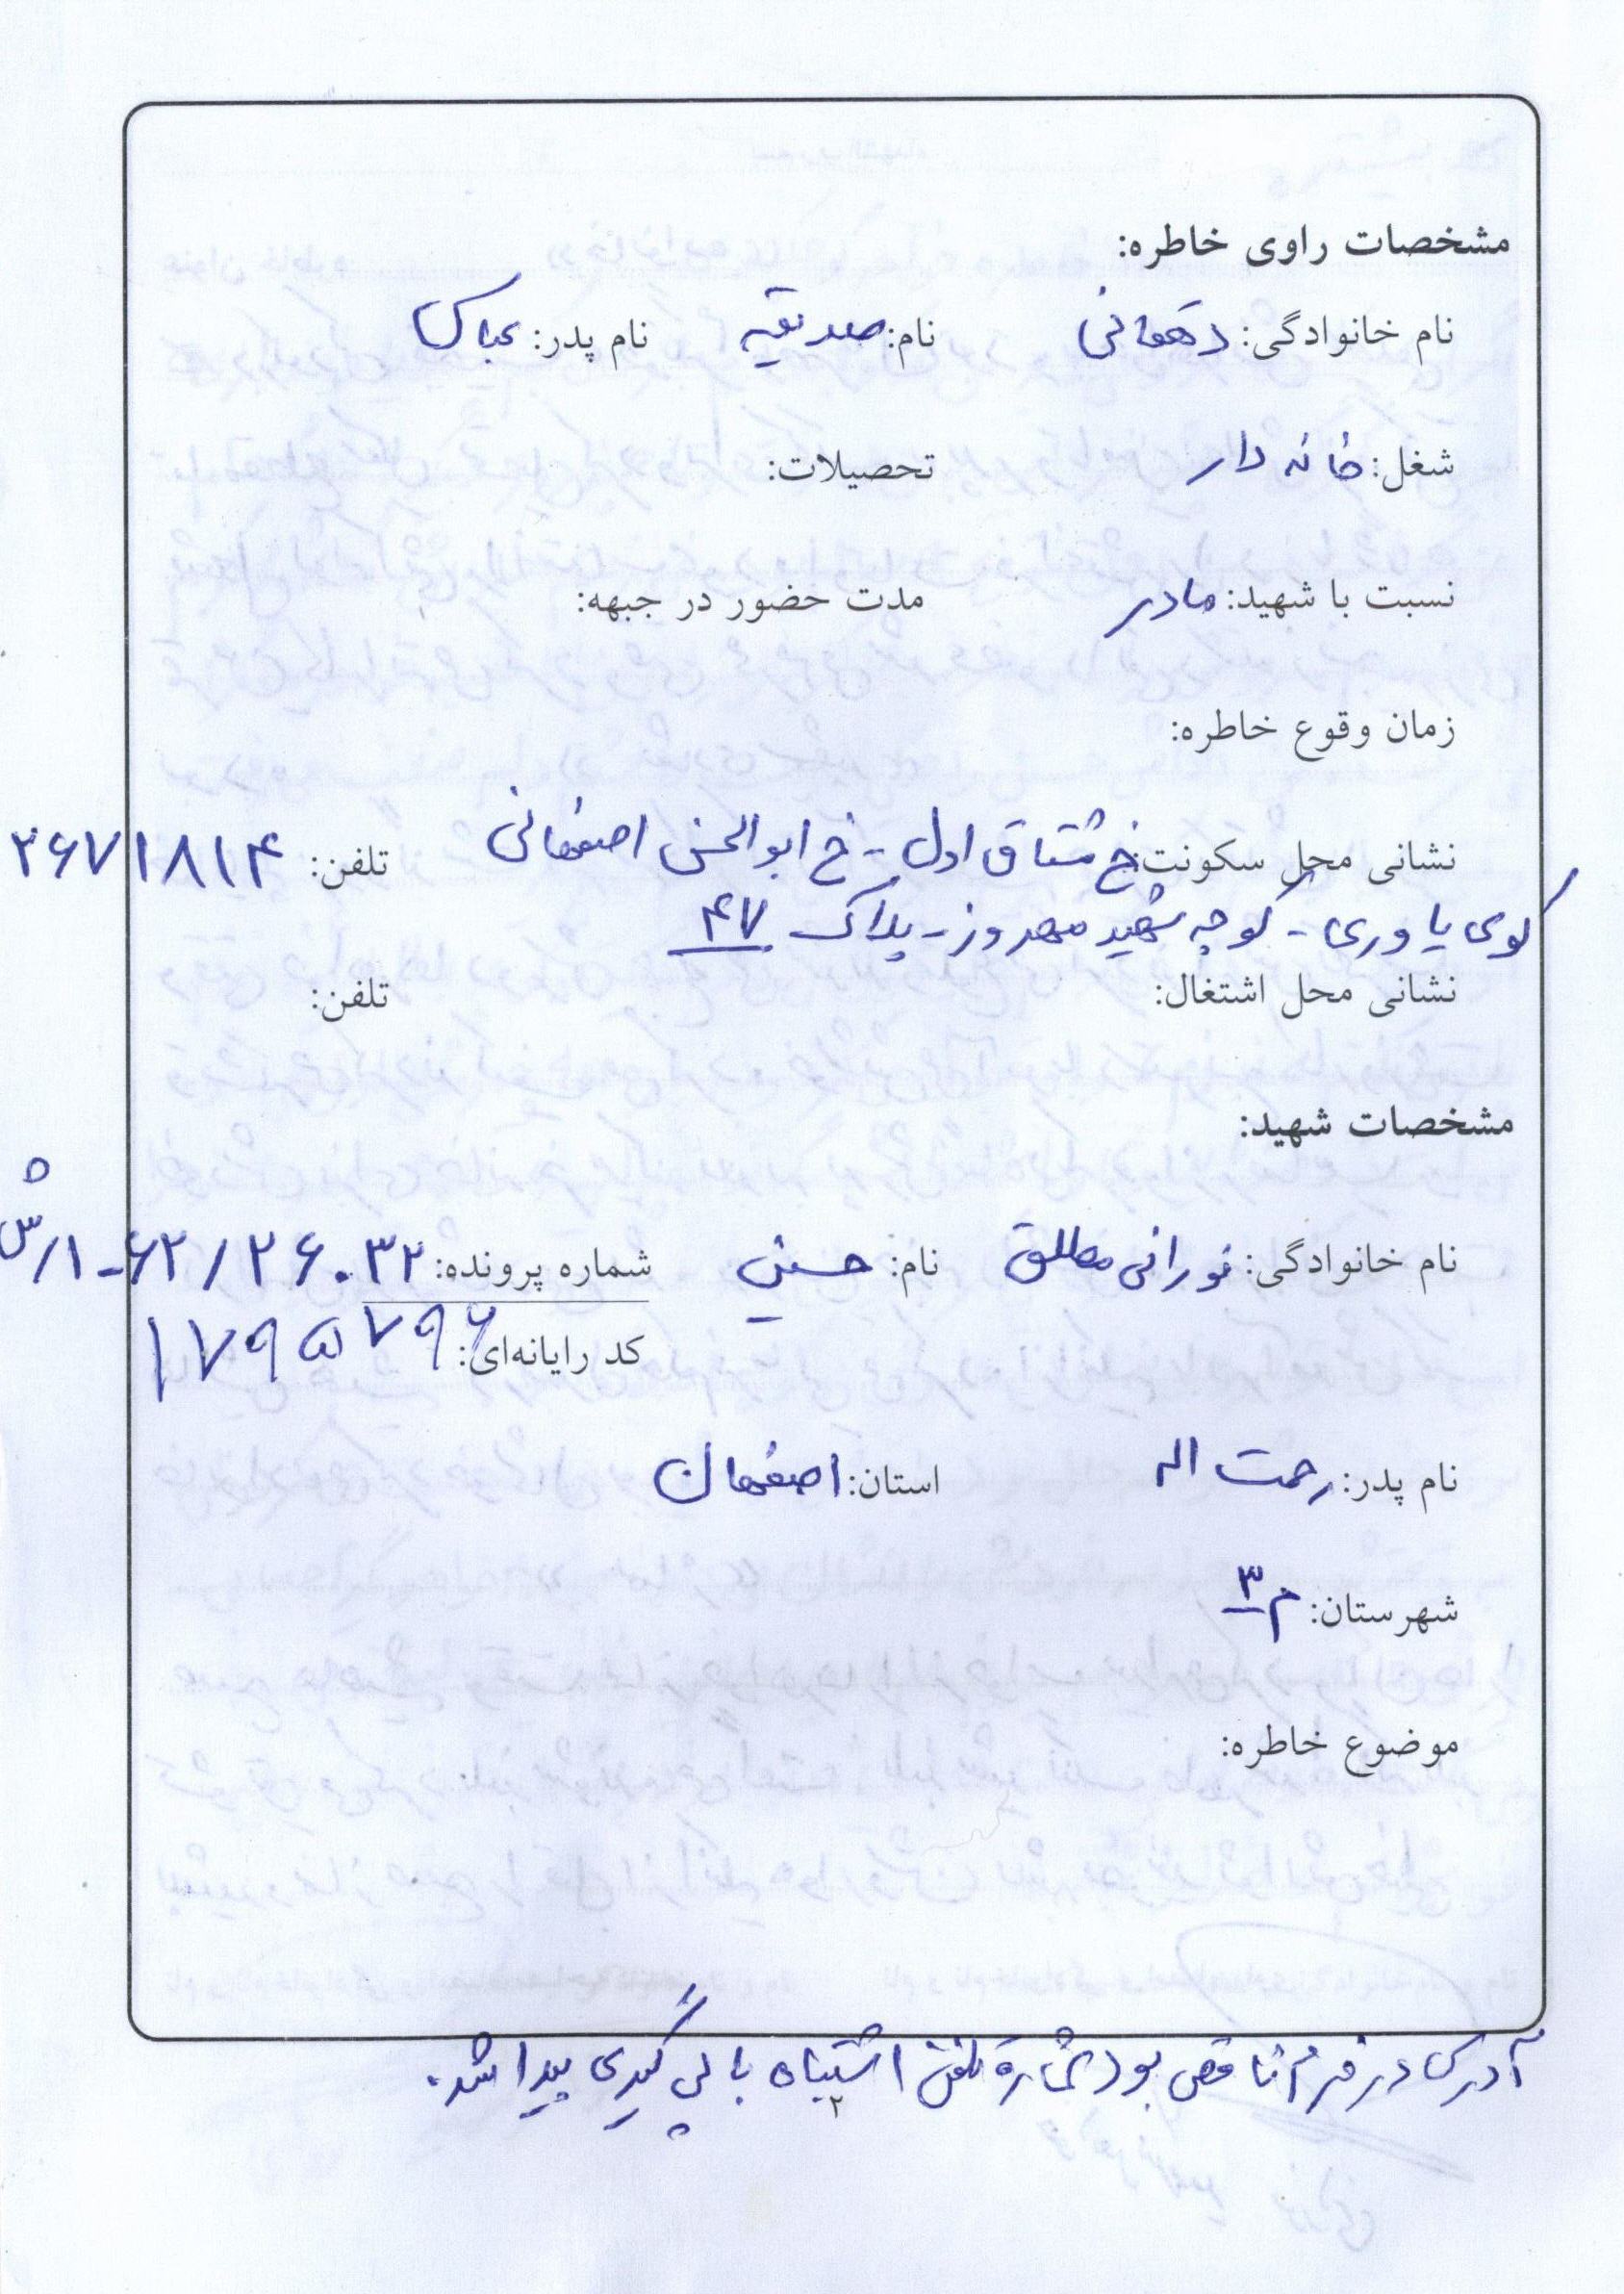 مشخصات راوی خاطره:
نام خانوادگی: دهقانی نام: صدیقه نام پدر: عباس
شغل: خانه دار تحصیلات:
نسبت با شهید: مادر مدت حضور در جبهه:
زمان وقوع خاطره:
نشانی محل سکونت: خ مشتاق اول - خ ابوالحسن اصفهانی تلفن: ۲۶۷۱۸۱۴
کوی یاوری - کوچه شهید مهروز - پلاک ۴۷
نشانی محل اشتغال: تلفن:
مشخصات شهید:
نام خانوادگی: نورانی مطلق نام: حسین شماره پرونده: ۱-۶۲/۲۶۰۳۲/ش
کد رایانه‌ای: ۱۷۹۵۷۹۶
نام پدر: رحمت اله استان: اصفهان
شهرستان: م ۳
موضوع خاطره:
آدرس در فرم ناقص بود شماره تلفن اشتباه با پی گیری پیدا شد.
۲